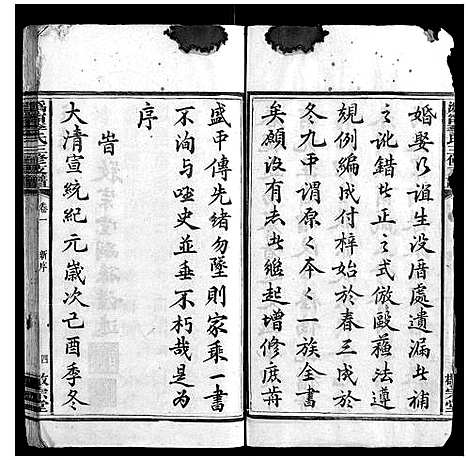 婚娶乃誼生没厝處遺漏者補
之訛錯者正之式倣歐蘇法遵
規例編成付梓始於春三成於
冬九甲謂原〻本〻一族全書
矣願沒有志者繼起增修庶肯
盛甲傳先緒勿墜則家乘一書
不洵與噬史並垂不朽哉是为
序
旹
大清宣統紀元嵗次己酉季冬
卷一
新序
四
敦宗堂